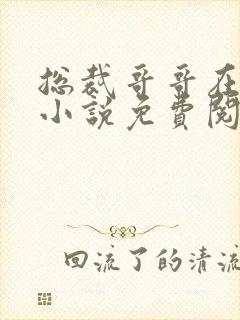 总裁哥哥在
小说免费阅
回流了的清流